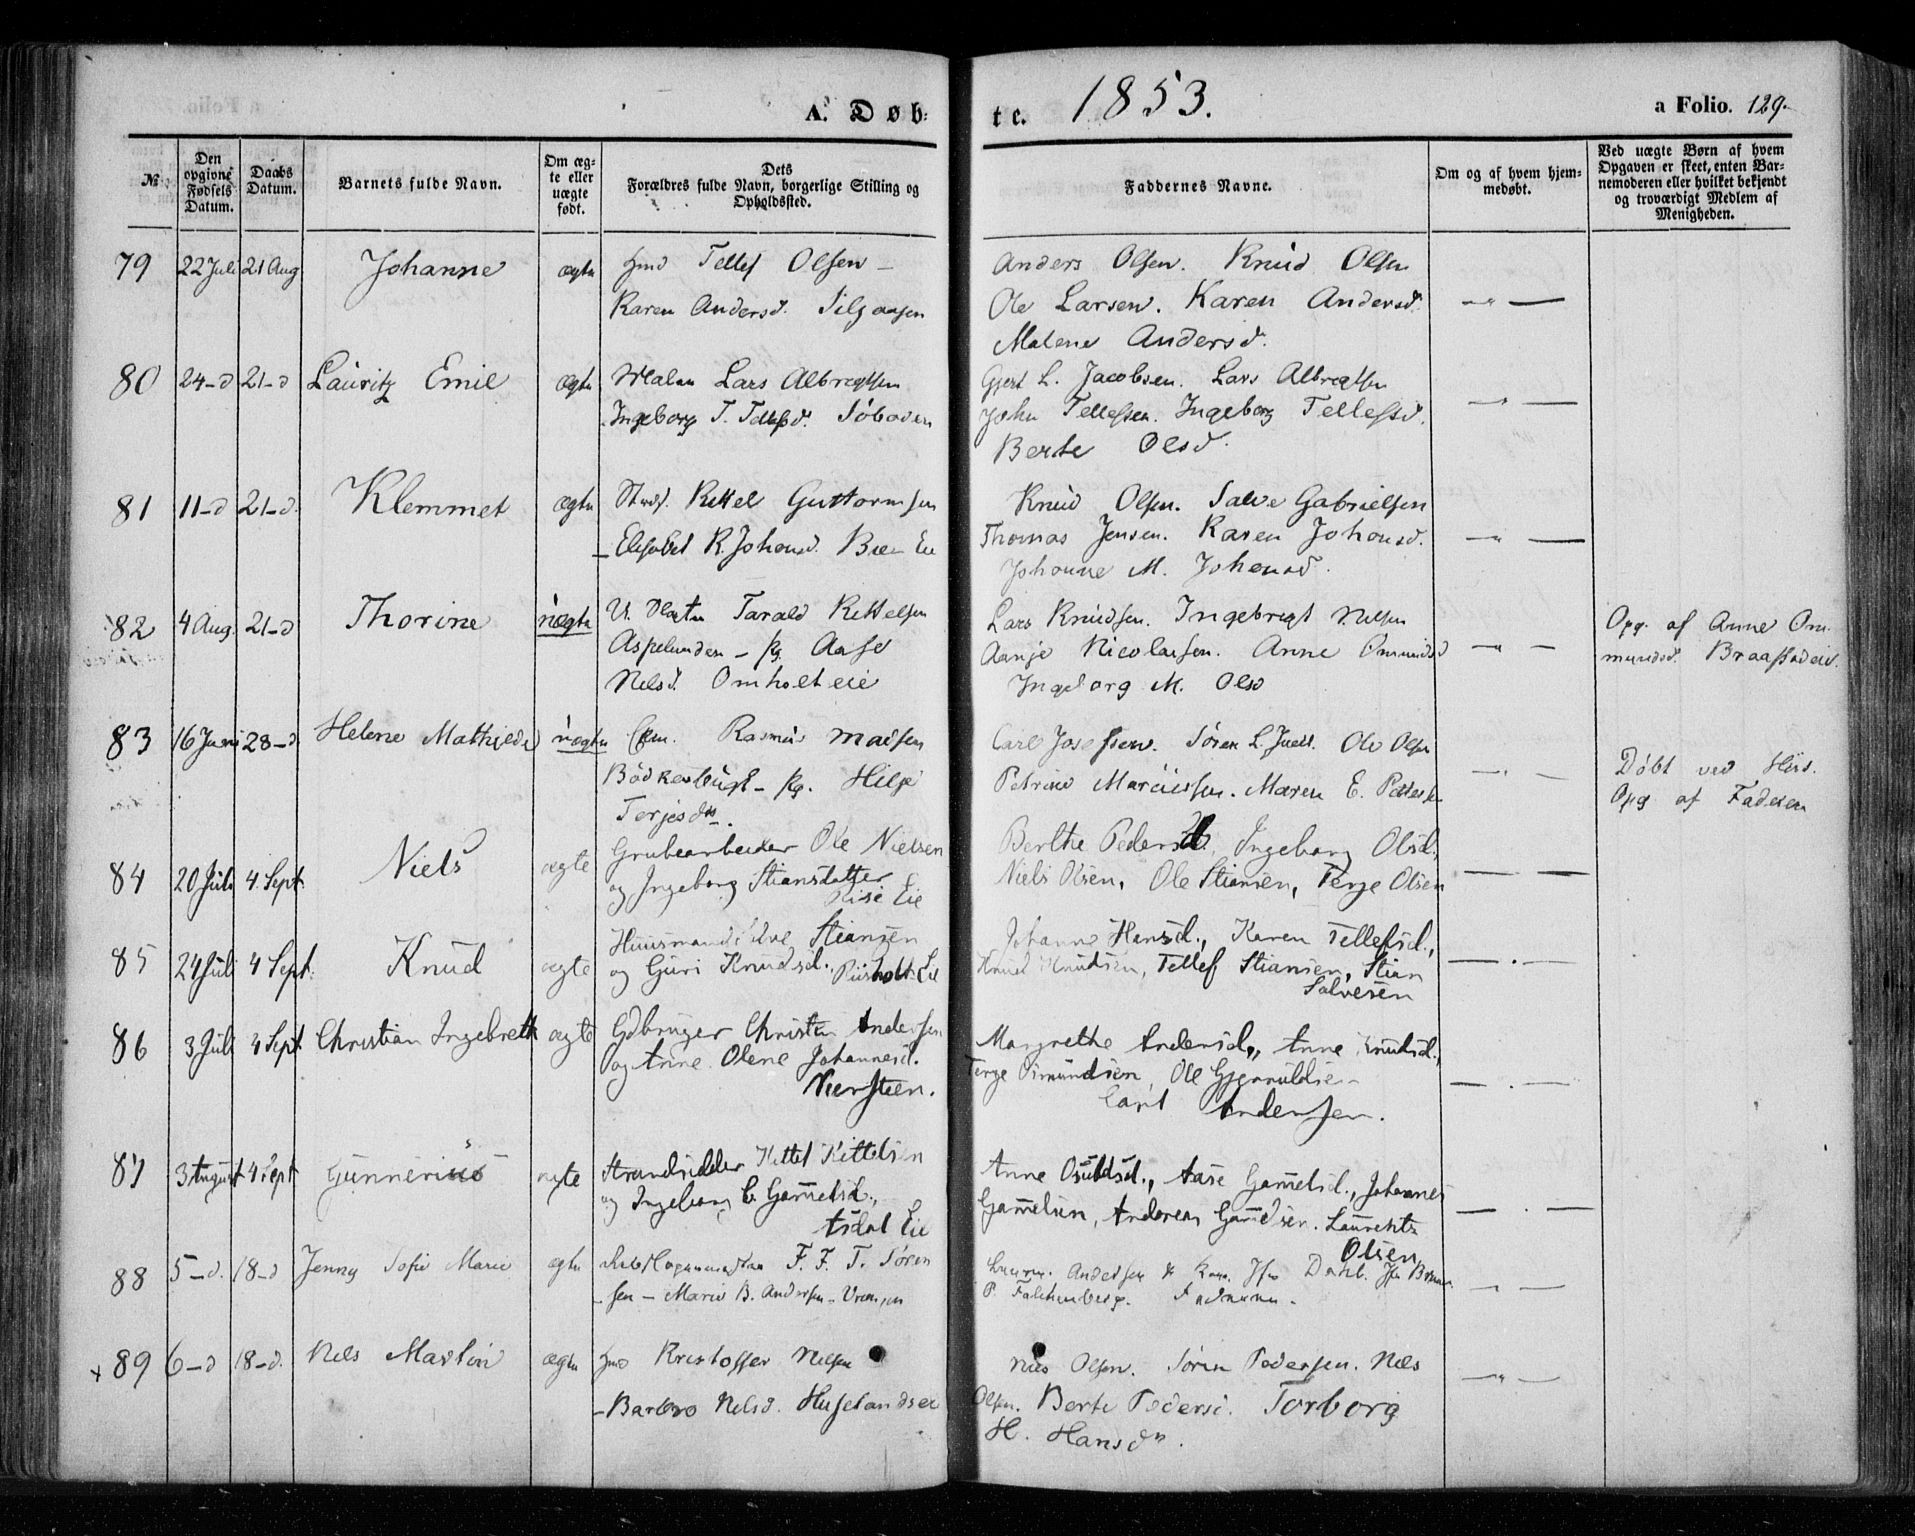 A. Døb-
te. 1853. a Folio. 129.
№
Den opgivne Fødsels Datum.
Daabs Datum.
Barnets fulde Navn.
Om ægte eller uægte født.
Dets Forældres fulde Navn, borgerlige Stilling og Opholdssted.
Faddernes Navne.
Om og af hvem hjemmedøbt.
Ved uægte Børn af hvem Opgaven er skeet, enten Barnemoderen eller hvilket bekjendt og troværdigt Medlem af Menigheden.
79 22 Juli 21 Aug Johanne ægte Hmd Tellef Olsen – Anders Olsen. Knud Olsen
Karen Andersd. Ole Larsen. Karen Andersd. —"—
Malene Andersd.
80 24-d 21-d Lauritz Emil ægte Lars Albregtsen Gjert L. Jacobsen. Lars Albregtsen
Ingeborg T. Tellefsd. Søboden John Tellefsen. Ingeborg Tellefsd. —"—
Berte Olsd.
81 11-d 21-d. Klemmet ægte Strds. Kittel Guttormsen Knud Olsen. Salve Gabrielsen
– Elisabet K. Johansd. Eie Thomas Jensen. Karen Johansd. —"—
Johanne M. Johansd.
82 4 Aug. 21-d Thorine uægte U. Tarald Kittelsen Lars Knudsen. Ingebregt Nilsen Opg. af Anne Om-
Aspelunden – pg. Aase Aanje Nicolaisen. Anne Omundsd —"— mundsd. Braastadeie.
Nelsd. Omholteie Ingeborg M. Olsd
83 16 Juni 28-d. Helene Mathilde uægte Rasmus Madsen Carl Josefsen. Søren L. Juell. Ole Olsen Døbt ved His.
– pg. Helge Petrine Mariussen. Maren E. —"— Opg af Faderen
Terjesdtr.
84 20 Juli 4. Sept. Niels ægte Grubearbeider Ole Nielsen Berthe Pedersd., Ingeborg Olsd.,
og Ingeborg Stiansdatter Niels Olsen, Ole Stiansen, Terje Olsen —"—
Rise Eie
85 24 Juli 4 Sept. Knud ægte Huusmand Salve Stiansen Johanne Hansd., Karen Tellefsd.,
og Guri Knudsd., Eie Knud Knudsen, Tellef Stiansen, Stian —.—
Salvesen
86 3 Juli 4 Sept. Christian Ingebreth ægte Gdbruger Christen Andersen Margrethe Andersd., Anne Knudsd.,
og Anne Olene Johannesd. Terje Osmundsen, Ole —.—
Niersteen. Carl Andersen.
87 3 August 4 Sept Gunnerius ægte Strandsidder Kittel Kittelsen Anne Osuldsd., Aase Gamelsd., Johannes
og Ingeborg C. Gamelsd., Gamelsen, Andreas Gamelsen. Laurentz —.—
Asdal Eie Olsen
88 5-d. 18-d Jenny Sofie Marie ægte F. F. T. Søren Andersen Jfr Dahl. Jfr
-sen – Marie B. Andersen – P. Falchenberg. —"—
89 6-d 18-d. Nels Martin ægte Hmd Kristoffer Nelsen Nils Olsen. Søren Pedersen. Nels
– Barbro Nelsd. Olsen. Berte Pedersd. Torborg —"—
H. Hansdtr.